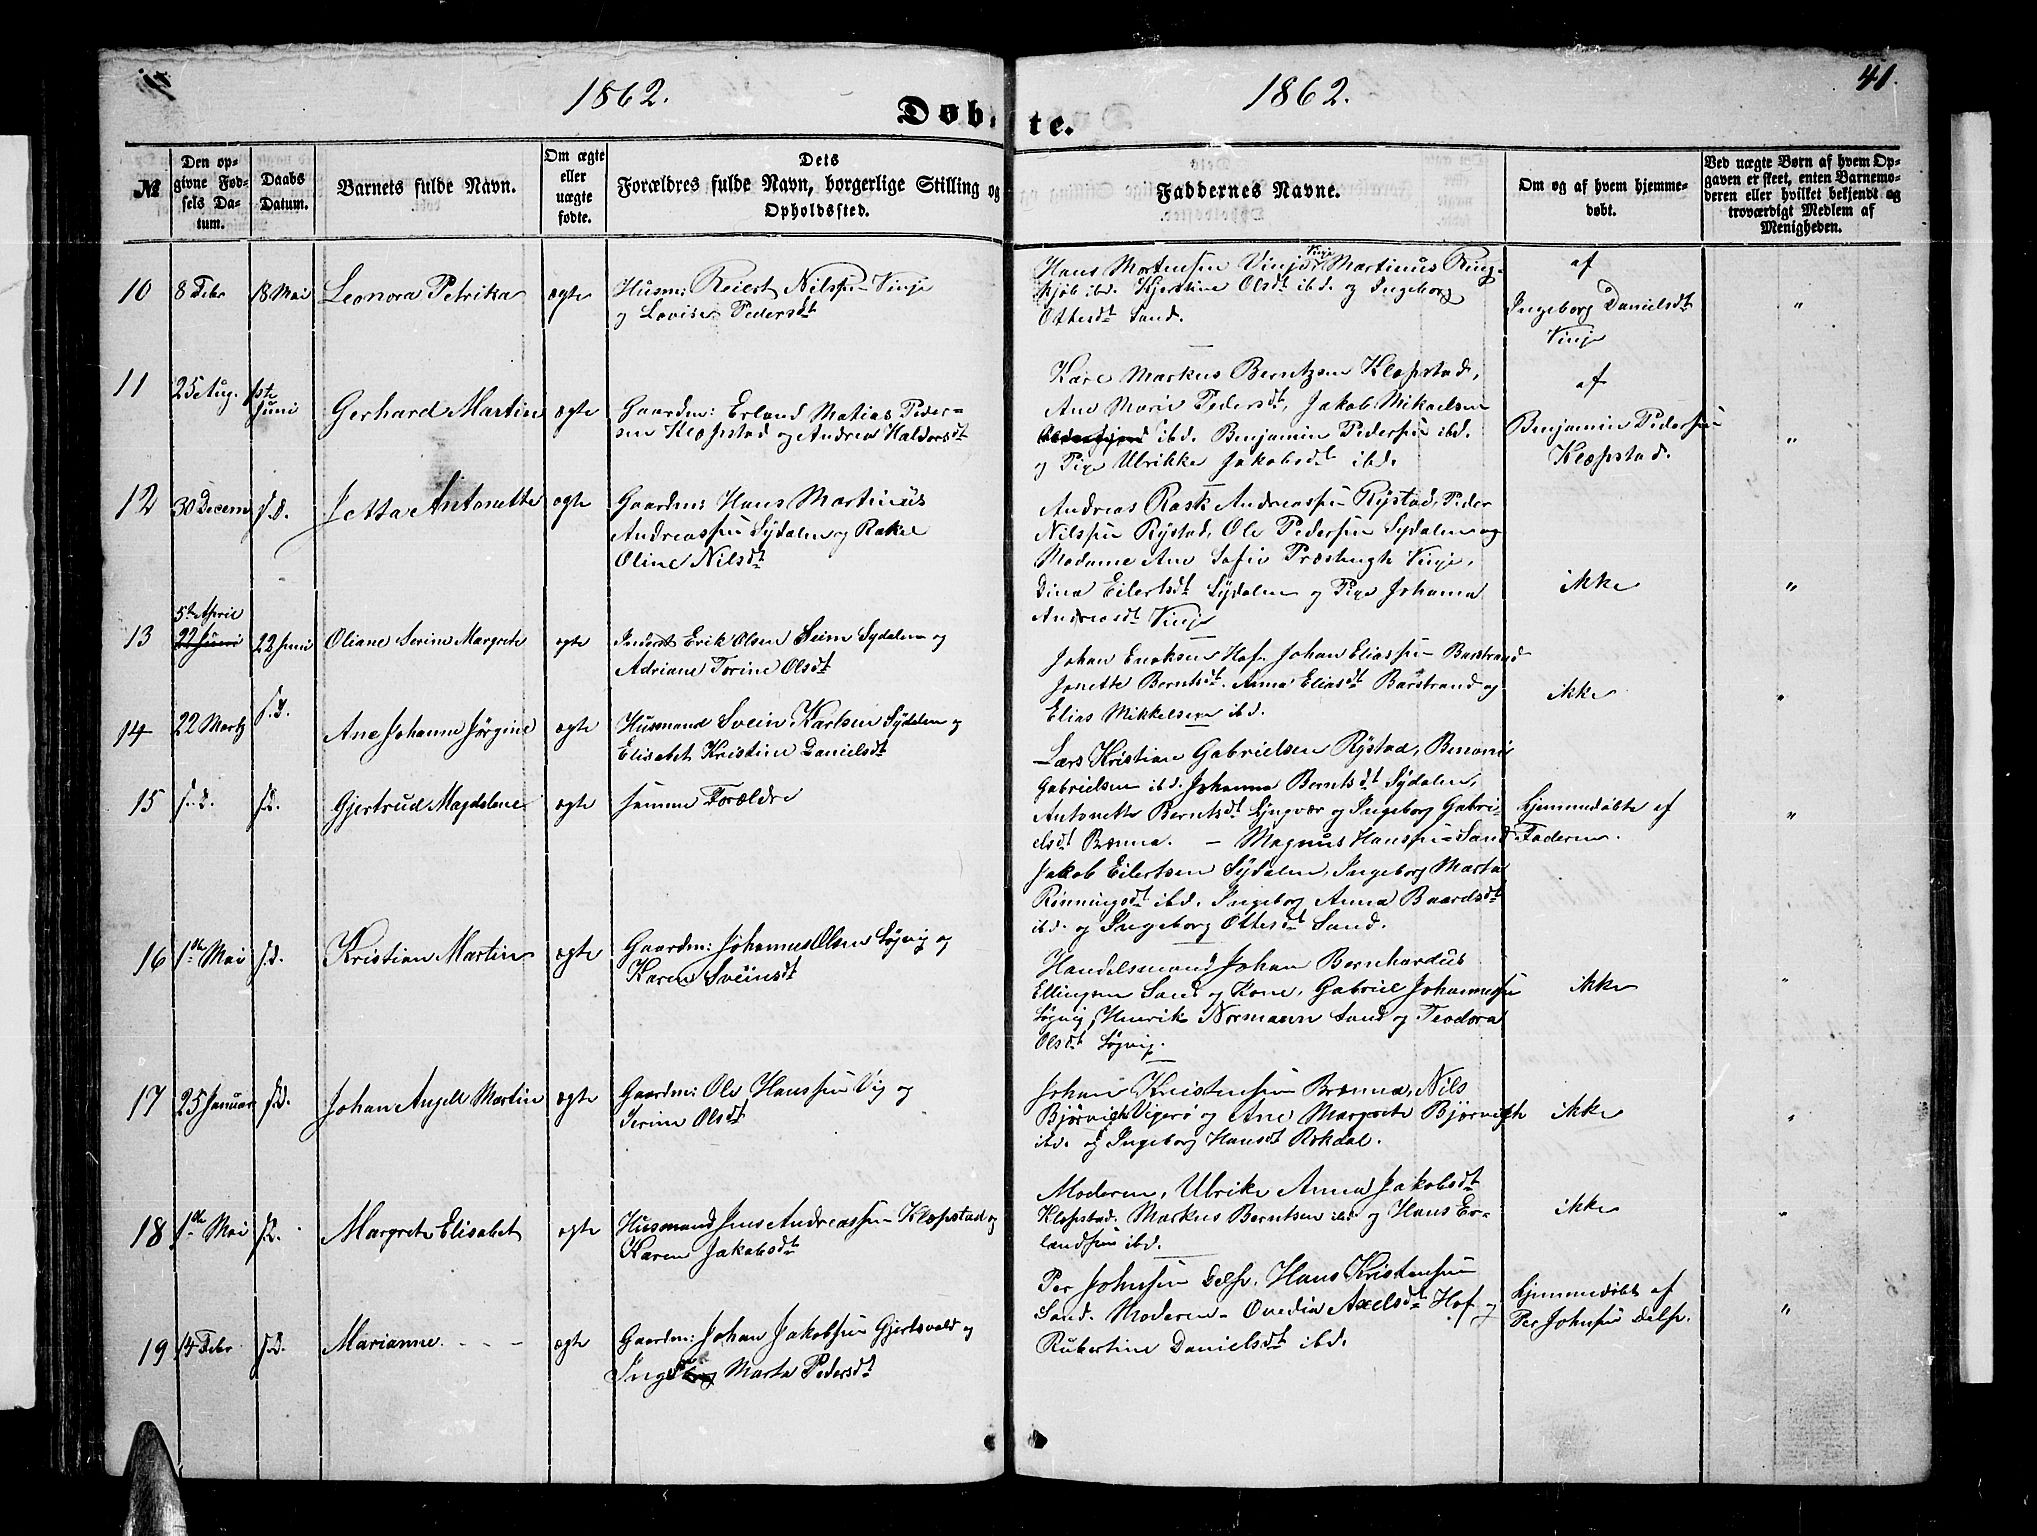 1862.
1862.
41.
Døb
te.
№
Den op-
givne Fød-
sels Da-
tum.
Daabs
Datum.
Barnets fulde Navn.
Om ægte
eller
uægte
fødte.
Dets
Forældres fulde Navn, borgerlige Stilling og
Opholdssted.
Faddernes Navne.
Om og af hvem hjemme-
døbt.
Ved uægte Børn af hvem Op-
gaven er skeet, enten Barnemo-
deren eller hvilket bekjendt og
troværdigt Medlem af
Menigheden.
10
8 Febr
18 Mai
Leonora Petrika
ægte
Husm: Reiert Nilssen Vinje
og Lovise Pedersdt
Hans Mortensen Vinje Martinus Ring-
skjöb ibd. Kjerstine Olsdt ibd. og Ingeborg
Ottesdt Sand.
af
Ingeborg Danielsdt
Vinje
"
11
25 Aug.
1ste
Juni
Gerhard Martin
ægte
Gaardm: Erland Matias Peder-
sen Klæpstad og Andrea Haldorsdt
Kare Markus Berntzen Klæpstad,
Ane Marie Pedersdt, Jakob Mikaelsen
ibd. Benjamin Pedersen ibd.
og Pige Ulrikke Jakobsdt ibd.
af
Benjamin Pedersen
Klæpstad.
"
12
30 Decem
s.D.
Jetta Antonette
ægte
Gaardm: Hans Martinus
Andreassen Sydalen og Rakel
Oline Nilsdt
Andreas Rask Andreassen Rystad, Peder
Nilssen Rystad, Ole Pedersen Sydalen og
Madame Ane Sofie Præstengte Vinje,
Dina Eilertsdt Sydalen og Pige Johanna
Andreasdt Vinje
ikke
"
13
5te April
22 Juni
22 Juni
Oliane Serine Margrete
ægte
Inderst Erik Olsen Seim Sydalen og
Adriane Torine Olsdt
Johan Enoksen Hof. Johan Eliassen Barstrand
Jonette Berntsdt. Anna Eliasdt Barstrand og
Elias Mikkelsen ibd.
ikke
"
14
22 Marts
s.D.
Ane Johanna Jørgine
ægte
Husmand Svein Karlsen Sydalen og
Elisabet Kristine Danielsdt
Lars Kristian Gabrielsen Rystad, Benoni
Gabrielsen ibd. Johanna Berntsdt Sydalen,
Antonette Berntsdt Lyngvær og Ingeborg Gabri-
elsdt Brenna. - Magnus Hanssen Sand
15
s.D.
s.D.
Gjertrud Magdalene
ægte
samme Forældre
Jakob Eilertsen Sydalen, Ingeborg Marta
Rönningsdt ibd. Ingeborg Anna Baardsdt
ibd. og Ingeborg Ottesdt Sand.
hjemmedöbte af
Faderen.
"
16
1ste Mai
s.D.
Kristian Martin
ægte
Gaardm: Johannes Olsen Løgvig og
Karen Sveinsdt
Handelsmand Johan Bernhardus
Ellingsen Sand og Kone, Gabriel Johannessen
Løgvig, Henrik Normann Sand og Teodora
Olsdt Løgvig.
ikke
"
17
25 Januar
s.D.
Johan Anjell Martin
ægte
Gaardm: Ole Hanssen Vig og
Serine Olsdt
Johan Kristensen Brenna, Nils
Bjørvich Vigerø og Ane Margrete Bjørvich
ibd. og Ingeborg Hansdt Rokdal.
ikke
"
18
1ste Mai
s.D.
Margrete Elisabet
ægte
Husmand Jens Andreassen Klæpstad og
Karen Jakobsdt
Moderen, Ulrike Anna Jakobsdt
Klæpstad. Markus Berntsen ibd og Hans Er-
landsen ibd.
ikke
"
19
14 Febr
s.D.
Marianne
ægte
Gaardm: Johan Jakobsen Gjertsvold og
Marta Pedersdt
Per Johnsen Delp. Hans Kristensen
Sand. Moderen. Ovedia Axelsdt Hof og
Rubertine Danielsdt ibd.
hjemmedöbt af
Per Johnsen Delp.
"